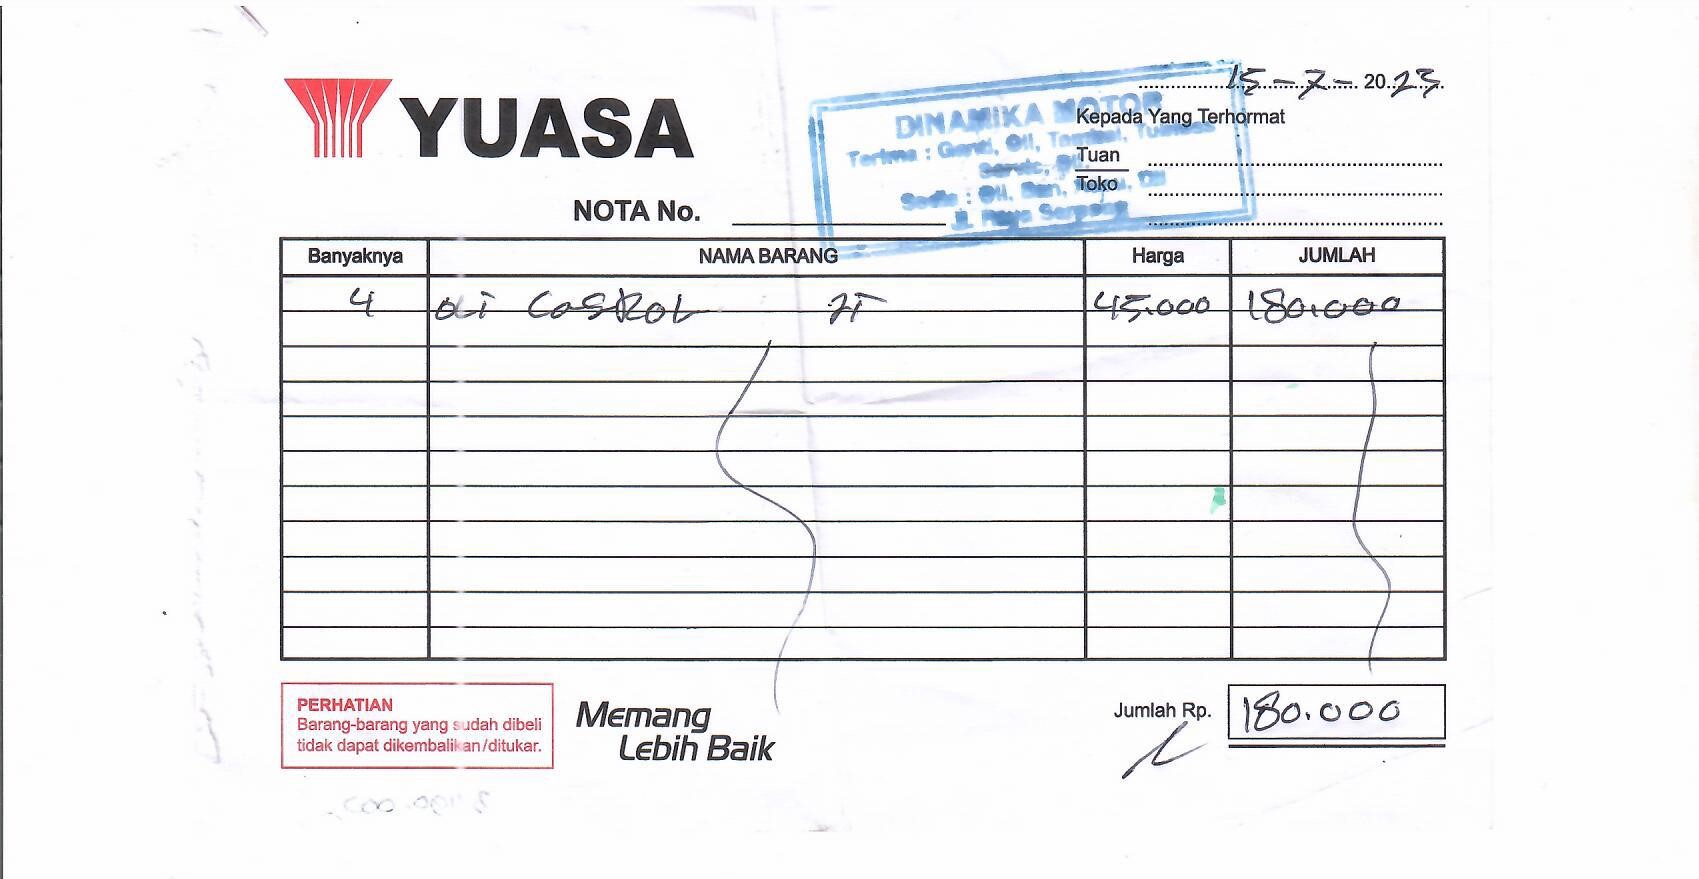 YUASA
15 - 7 - 2023
DINAMIKA MOTOR
Kepada Yang Terhormat
Terima : Ganti, Oli, Tambal, Tubles
Tuan
Toko
Sedia : Oli, Ban, Oli
Jl. Raya Serpong
NOTA No.
Banyaknya NAMA BARANG Harga JUMLAH
4 oli Castrol 2T 45.000 180.000
PERHATIAN
Barang-barang yang sudah dibeli
tidak dapat dikembalikan/ditukar.
Memang
Lebih Baik
Jumlah Rp. 180.000